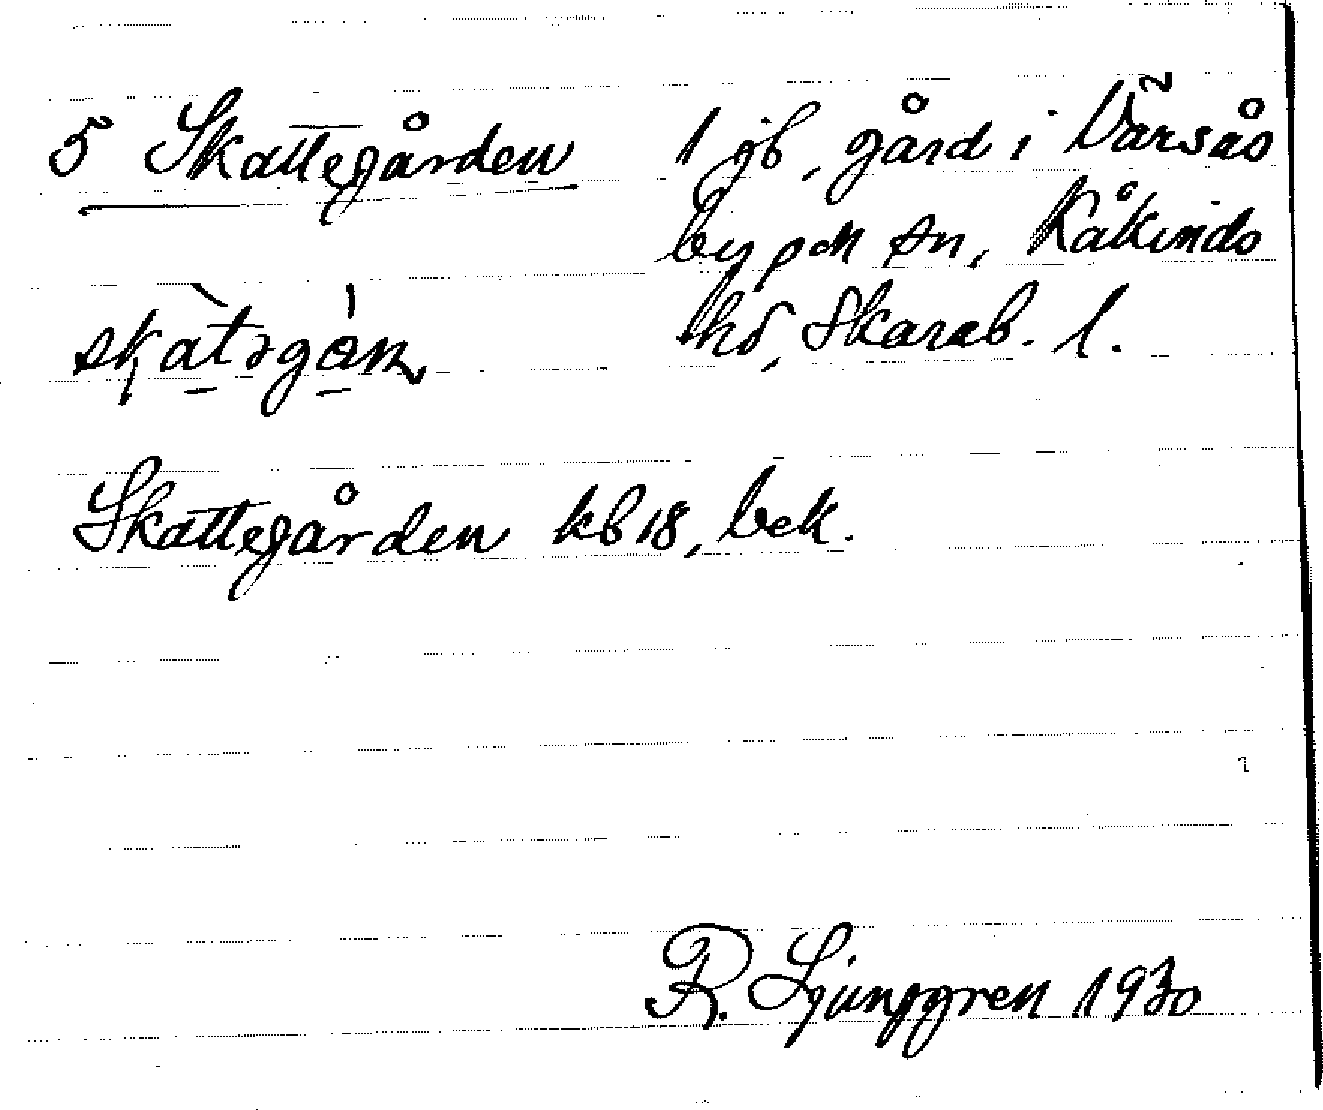 5 Skattegården 1 jb, gård i Värsås
by och sn, Kåkinds
hd, Skarab. l.
skàtəgán
Skattegården kb 18, bek.
R. Ljunggren 1930